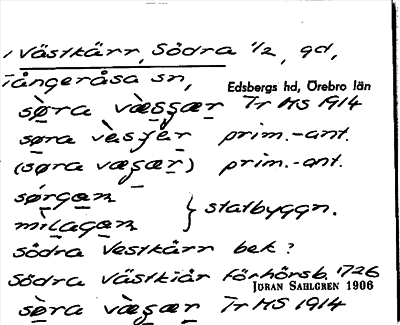 Västkärr, Södra 1/2, gd,
Tångeråsa sn,
Edsbergs hd, Örebro län
søra væssær Tr HS 1914
søra prim.-ant.
(søra væsær) prim.-ant.
sørgan
milagan } statbyggn.
södra Vestkärr bek?
Södra Västkiär förhörsb. 1726
JÖRAN SAHLGREN 1906
søra væsær Tr HS 1914